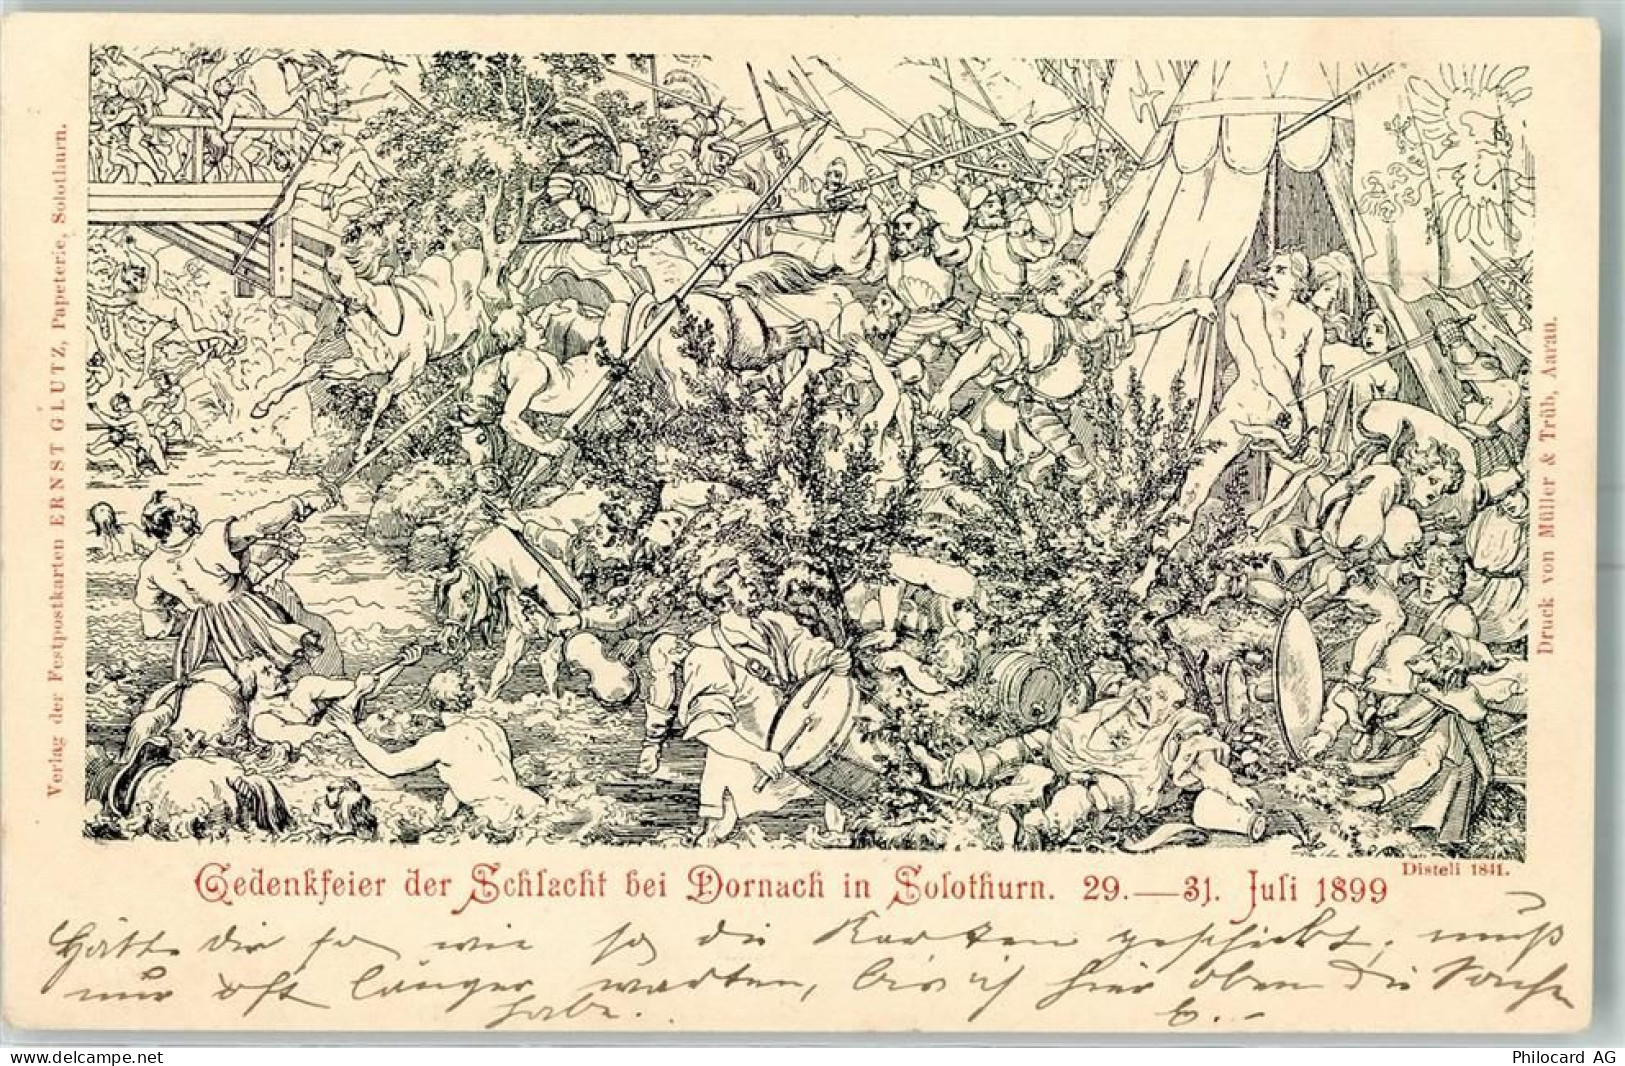 Verlag der Festpostkarten ERNST GLUTZ, Papeterie, Solothurn.
Druck von Müller & Trüb, Aarau.
Disteli 1841.
Gedenkfeier der Schlacht bei Dornach in Solothurn. 29.—31. Juli 1899
Hätte dir so wie so die Karten geschickt, muß
nur oft länger warten, bis ich hier oben die Sache
habe.
delcampe.net
Philocard AG